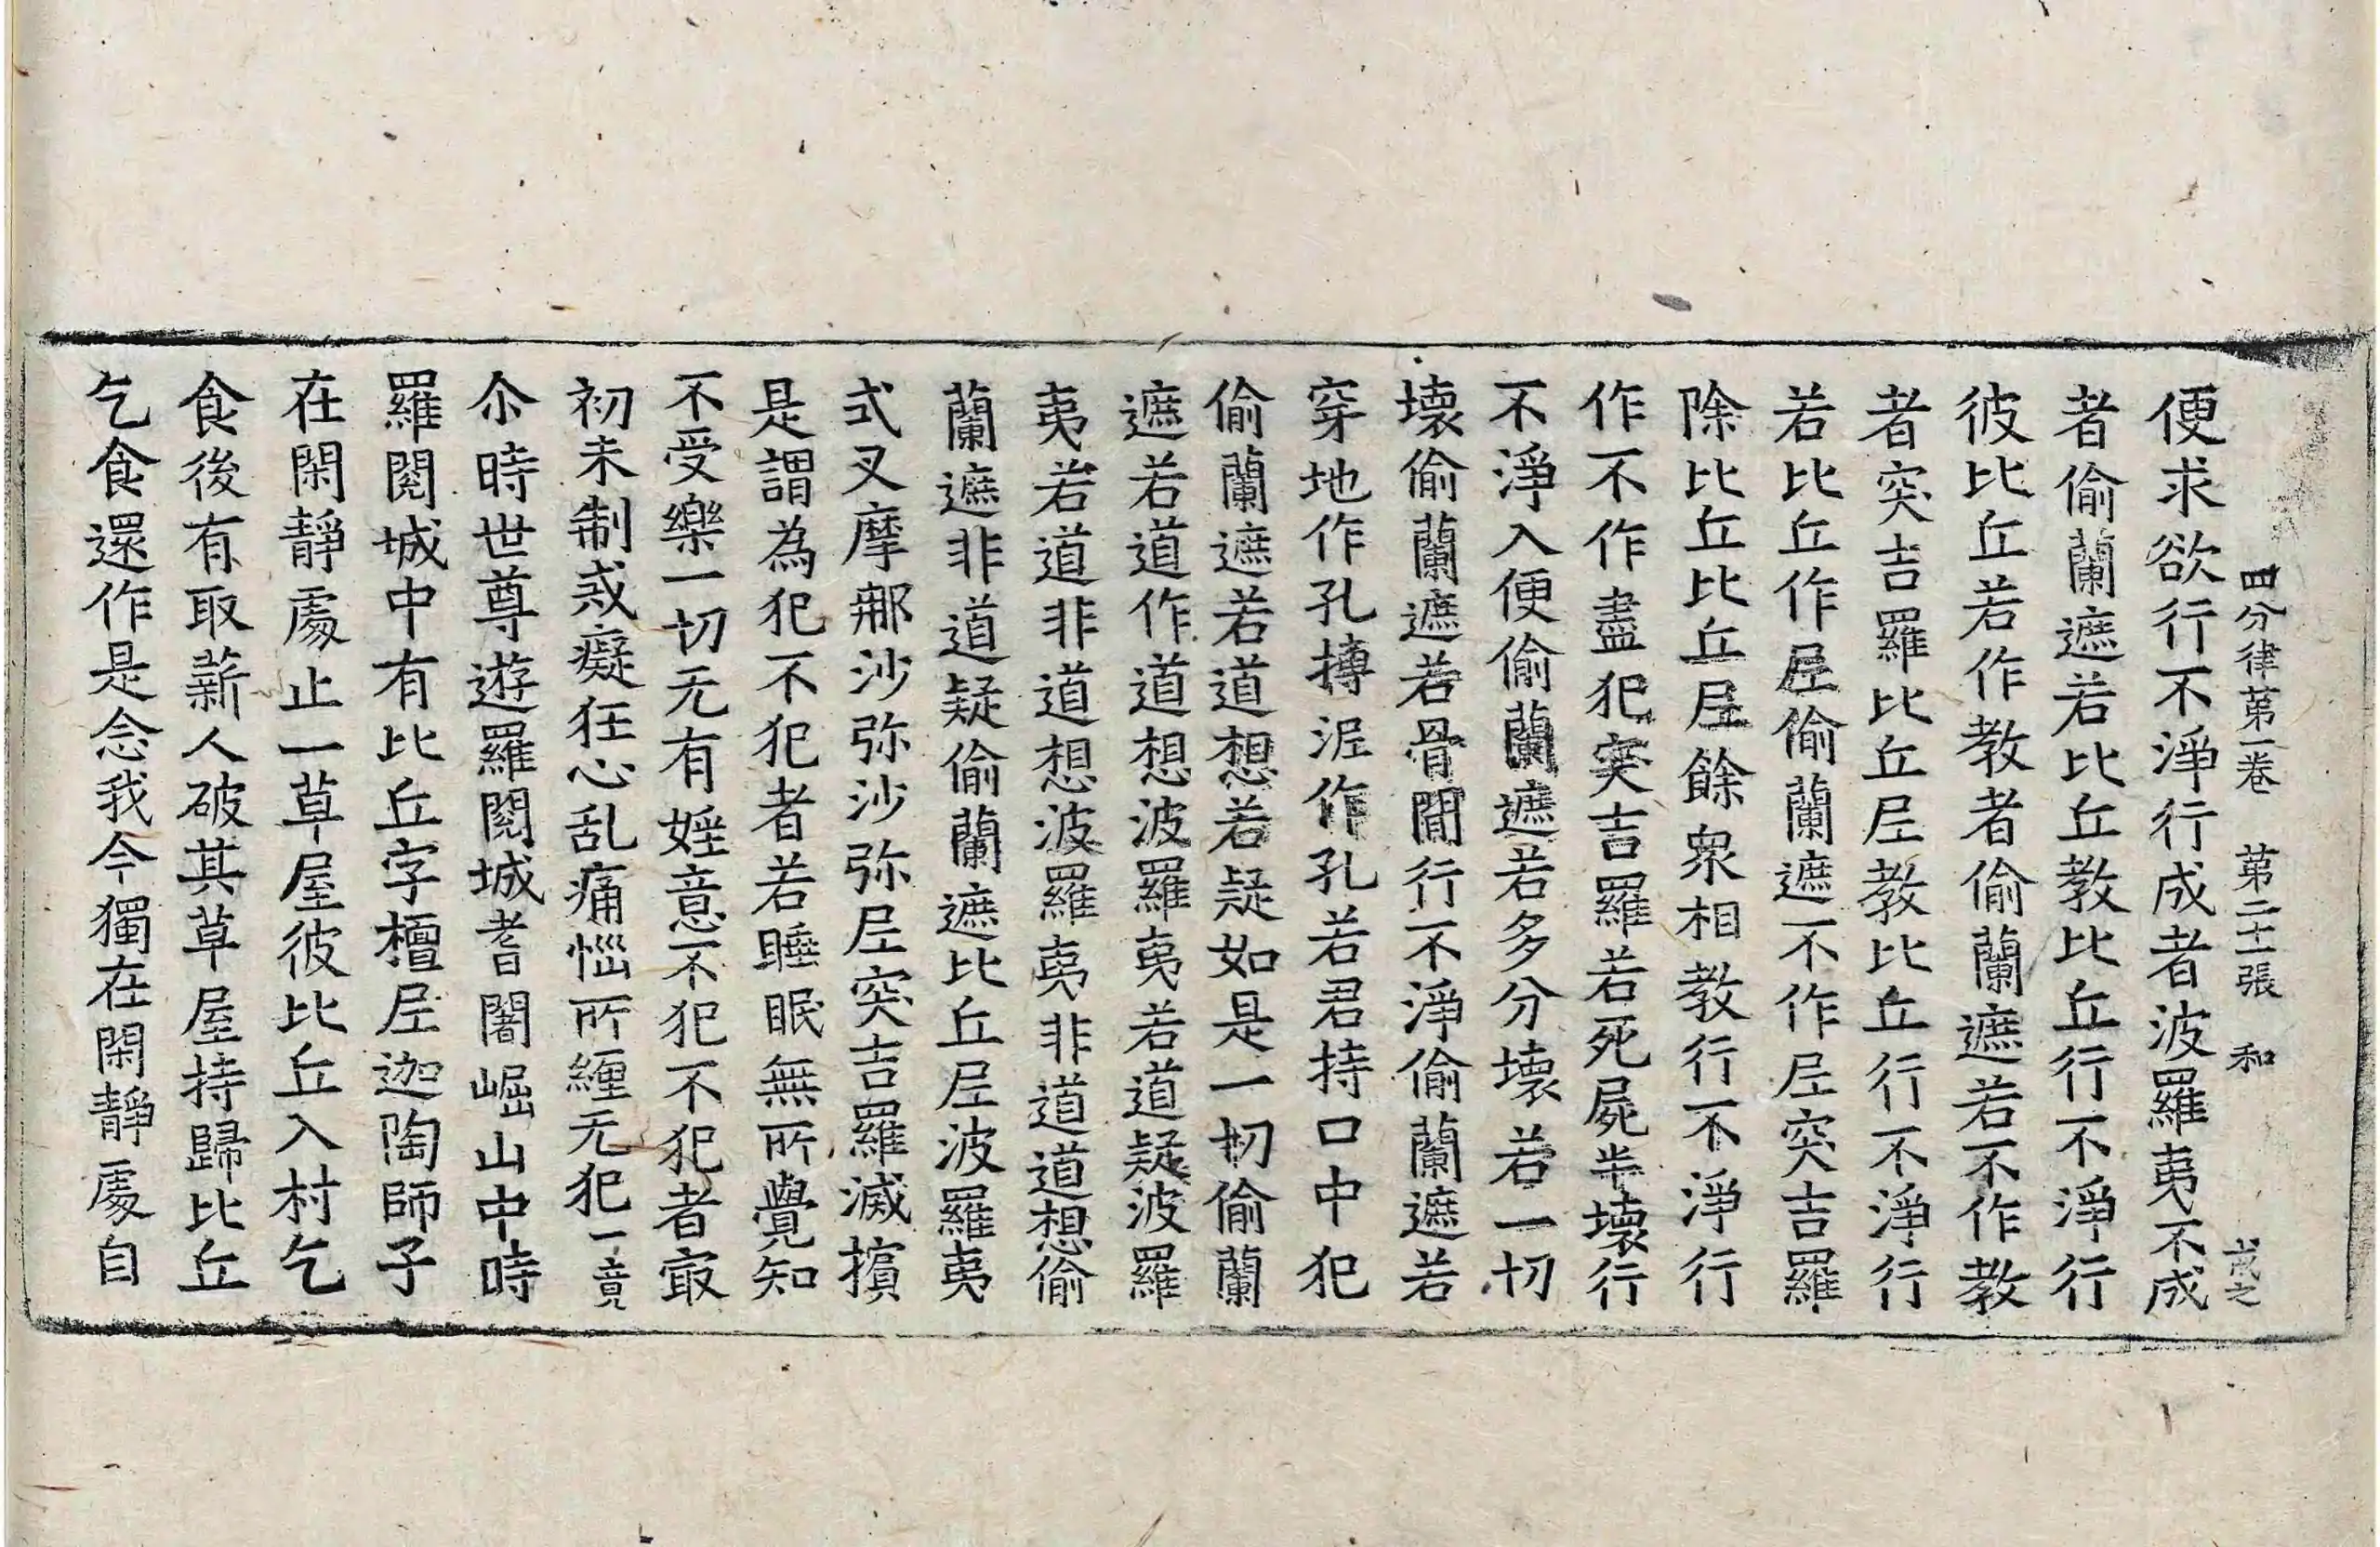 四分律第一卷 第二十一張 和 戒之
便求欲行不淨行成者波羅夷不成
者偷蘭遮若比丘教比丘行不淨行
彼比丘若作教者偷蘭遮若不作教
者突吉羅比丘尼教比丘行不淨行
若比丘作尼偷蘭遮不作尼突吉羅
除比丘比丘尼餘衆相教行不淨行
作不作盡犯突吉羅若死屍半壞行
不淨入便偷蘭遮若多分壞若一切
壞偷蘭遮若骨間行不淨偷蘭遮若
穿地作孔摶泥作孔若君持口中犯
偷蘭遮若道想若疑如是一切偷蘭
遮若道作道想波羅夷若道疑波羅
夷若道非道想波羅夷非道道想偷
蘭遮非道疑偷蘭遮比丘尼波羅夷
式叉摩那沙弥沙弥尼突吉羅滅擯
是謂為犯不犯者若睡眠無所覺知
不受樂一切无有婬意不犯不犯者㝡
初未制戒癡狂心乱痛惱所纏无犯一竟
尒時世尊遊羅閱城耆闍崛山中時
羅閱城中有比丘字檀尼迦陶師子
在閑靜處止一草屋彼比丘入村乞
食後有取薪人破其草屋持歸比丘
乞食還作是念我今獨在閑靜處自